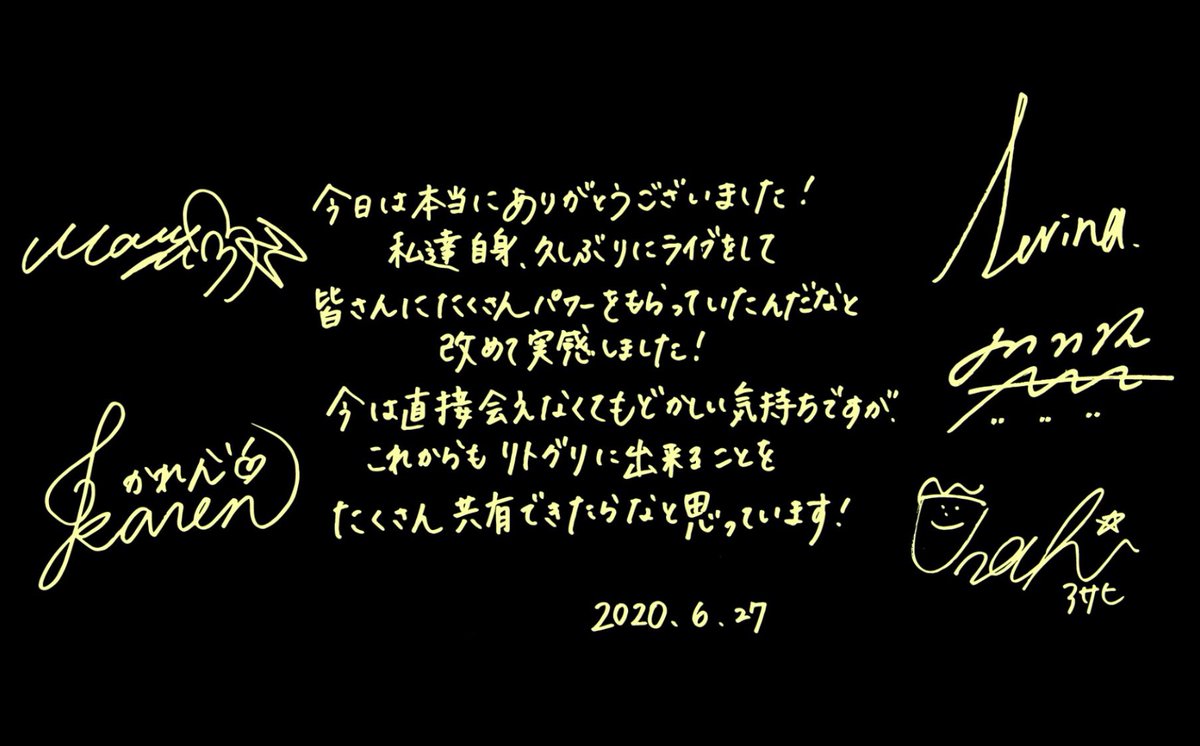 今日は本当にありがとうございました!
私達自身、久しぶりにライブをして
皆さんにたくさんパワーをもらっていたんだなと
改めて実感しました!
今は直接会えなくてもどかしい気持ちですが、
これからも リトグリに出来ることを
たくさん共有できたらなと思っています!
2020.6.27
かれん
Karen
Serina.
アサヒ